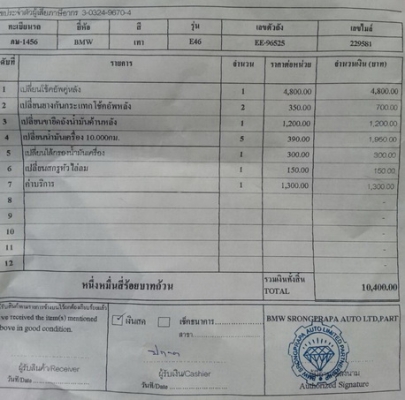 ประจำตัวผู้เสียภาษีอากร 3-0324-9670-4
ทะเบียนรถ ยี่ห้อ สี รุ่น เลขตัวถัง เลขไมล์
สม-1456 BMW เทา E46 EE-96525 229581
ลำดับที่ รายการ จำนวน ราคาต่อหน่วย จำนวนเงิน (บาท)
1 เปลี่ยนโช๊คอัพคู่หลัง 1 4,800.00 4,800.00
2 เปลี่ยนยางกันกระแทกโช้คอัพหลัง 2 350.00 700.00
3 เปลี่ยนขายึดถังน้ำมันด้านหลัง 1 1,200.00 1,200.00
4 เปลี่ยนน้ำมันเครื่อง 10.000กม. 5 390.00 1,950.00
5 เปลี่ยนไส้กรองน้ำมันเครื่อง 1 300.00 300.00
6 เปลี่ยนสกรูหัวไล่ลม 1 150.00 150.00
7 ค่าบริการ 1 1,300.00 1,300.00
8
9
10
11
12
หนึ่งหมื่นสี่ร้อยบาทถ้วน รวมเงินทั้งสิ้น
TOTAL 10,400.00
we received the item(s) mentioned
above in good condition.
เงินสด เช็คธนาคาร
สาขา
BMW SRONGPRAPA AUTO LTD,PART
ผู้รับสินค้า/Receiver
วันที่/Date
ผู้รับเงิน/Cashier
วันที่/Date
Authorized Signature